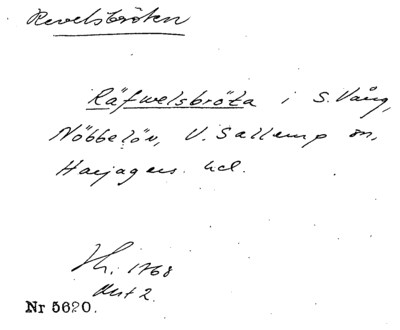 Revelsbröten
Räfwelsbröta i S. Vång,
Nöbbelöv, V. Sallerup sn,
Harjagers hd.
Hh. 1768
Akt 2.
Nr 5620.